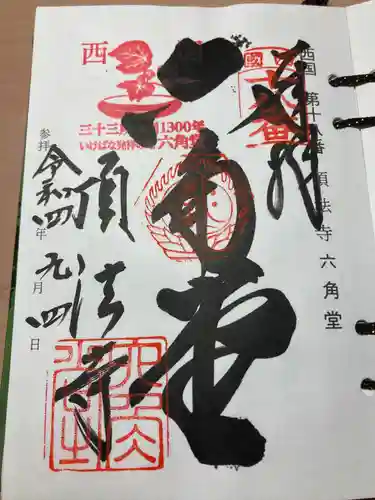 西国 第十八番 頂法寺 六角堂
奉拝
六角堂
西
三十三所 1300年
いけばな発祥 六角堂
頂法寺
参拝 令和四年 九月 四日